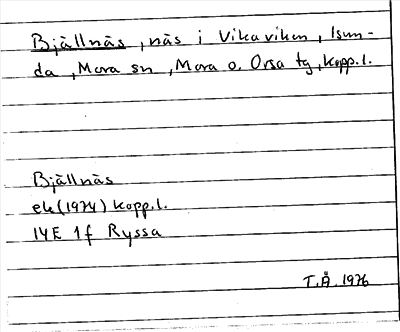 Bjällnäs, näs i Vikaviken, Isun-
da, Mora sn, Mora o. Orsa tg, Kopp.l.
Bjällnäs
ek (1974) Kopp.l.
14E 1f Ryssa
T.Å. 1976